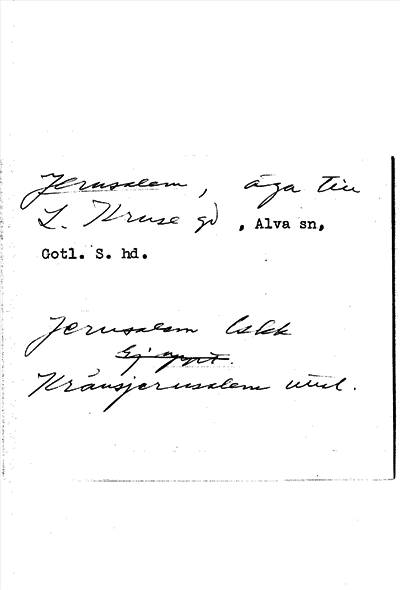 Jerusalem, äga till
L. Kruse gd, Alva sn,
Gotl. S. hd.
Jerusalem lskk
Ej uppt.
Kräusjerusalem uttal.